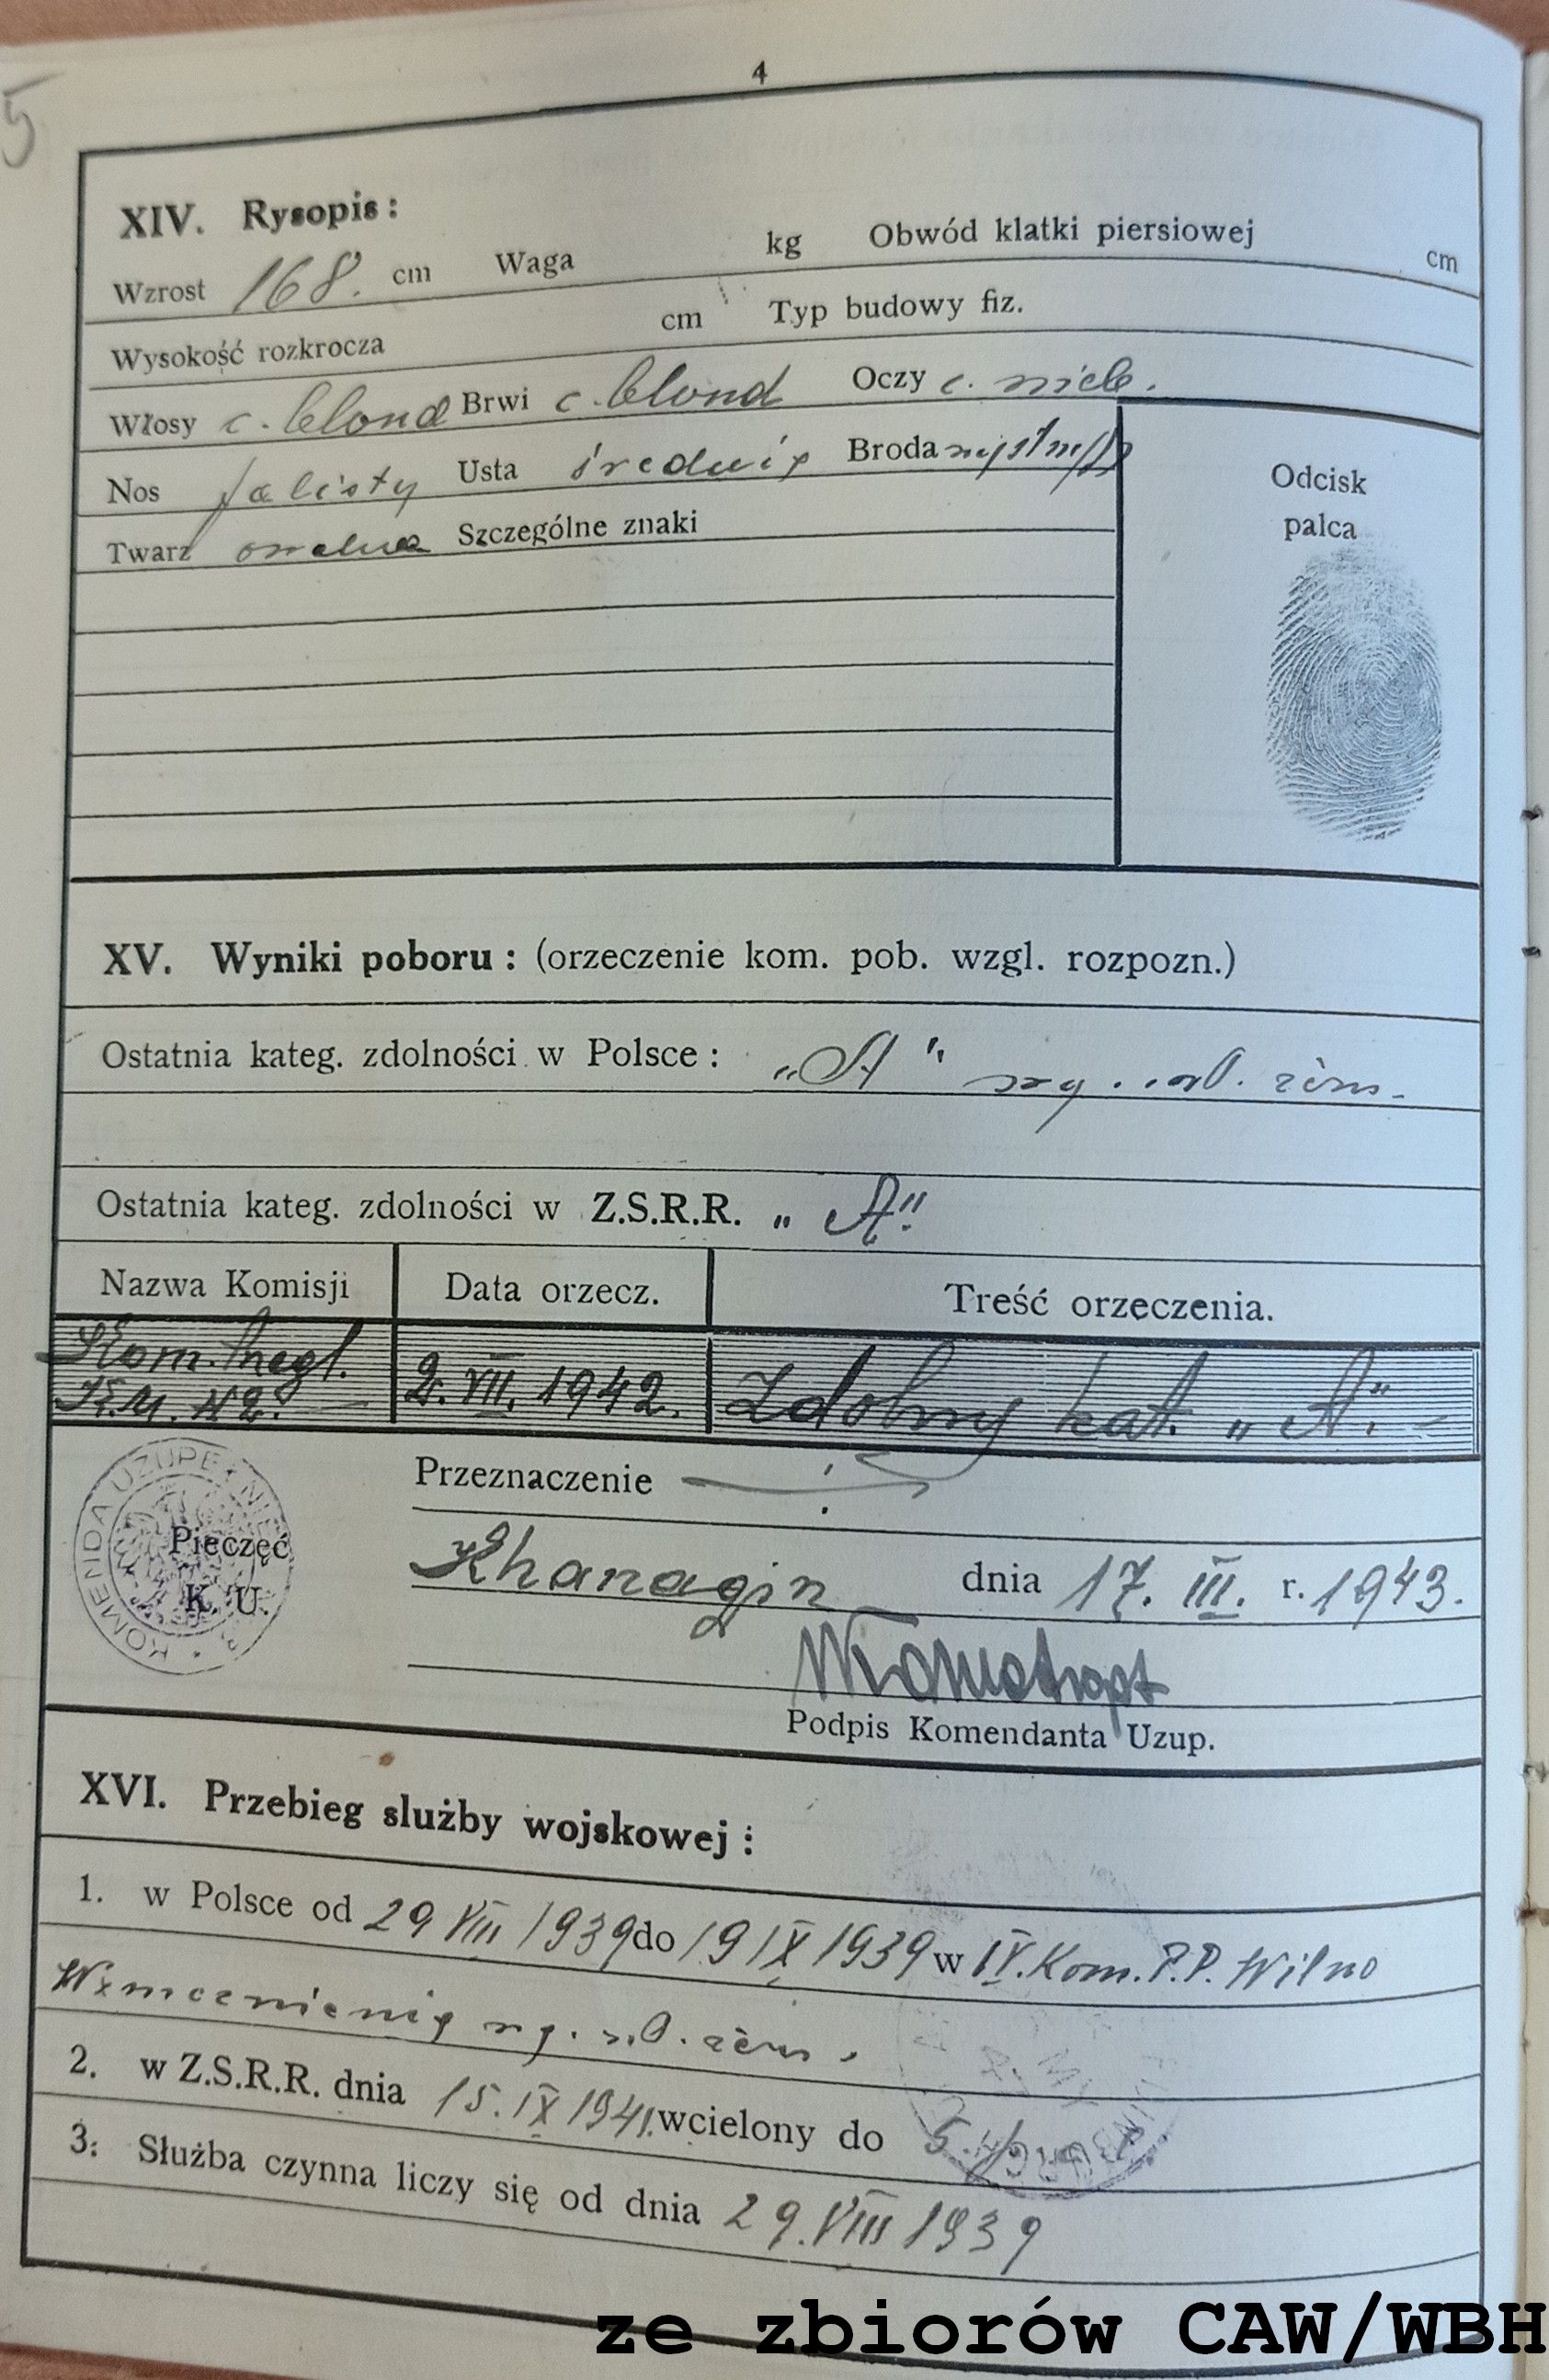 5
4
XIV. Rysopis:
Wzrost 168. cm Waga kg Obwód klatki piersiowej cm
Wysokość rozkrocza cm Typ budowy fiz.
Włosy c. blond Brwi c. blond Oczy c. nieb.
Nos falisty Usta średnie Broda
Twarz owalna Szczególne znaki
Odcisk
palca
XV. Wyniki poboru: (orzeczenie kom. pob. wzgl. rozpozn.)
Ostatnia kateg. zdolności w Polsce: „A"
Ostatnia kateg. zdolności w Z.S.R.R. „A"
Nazwa Komisji Data orzecz. Treść orzeczenia.
Kom. 2. VII. 1942. Zdolny kat. „A".
KOMENDA UZUPEŁNIEŃ
Pieczęć
K. U.
Przeznaczenie
Khanagin dnia 17. III. r. 1943.
Podpis Komendanta Uzup.
XVI. Przebieg służby wojskowej:
1. w Polsce od 29 VIII 1939 do 19 IX 1939 w IV. Kom. P.P. Wilno
2. w Z.S.R.R. dnia 15. IX 1941. wcielony do
3. Służba czynna liczy się od dnia 29. VIII 1939
ze zbiorów CAW/WBH